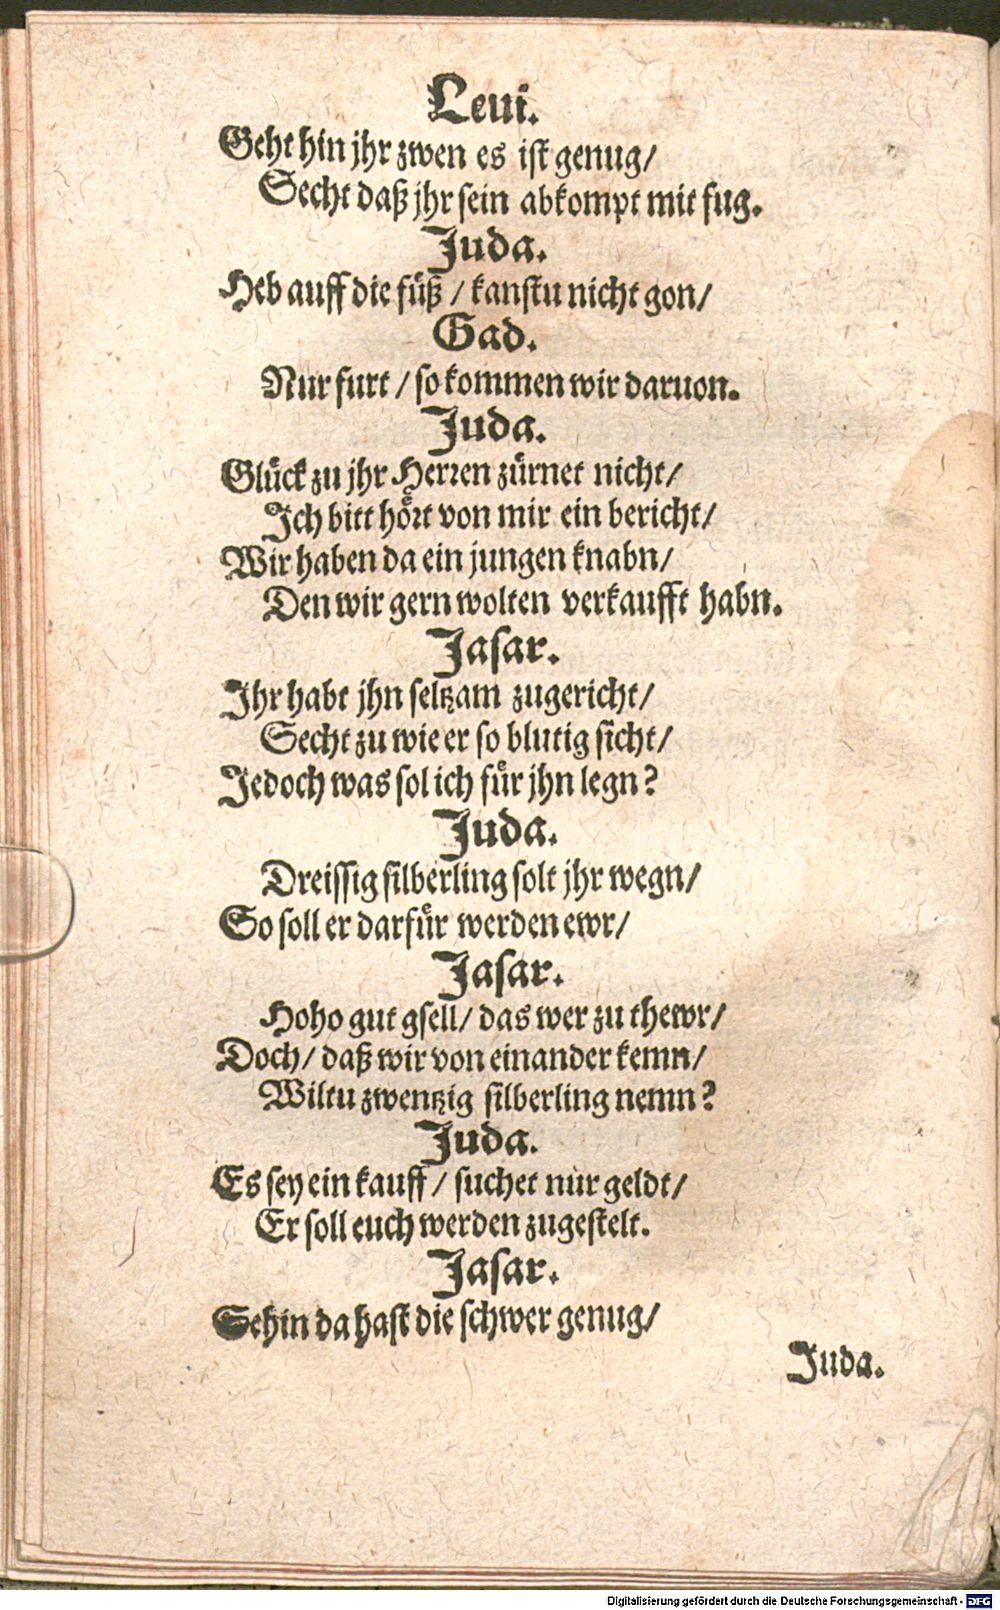 Leui.
Geht hin jhr zwen es ist genug/
Secht daß jhr sein abkompt mit fug.
Juda.
Heb auff die füß / kanstu nicht gon/
Gad.
Nur furt / so kommen wir daruon.
Juda.
Glück zu jhr Herren zürnet nicht/
Ich bitt hört von mir ein bericht/
Wir haben da ein jungen knabn/
Den wir gern wolten verkaufft habn.
Jasar.
Ihr habt jhn seltzam zugericht/
Secht zu wie er so blutig sicht/
Jedoch was sol ich für jhn legn?
Juda.
Dreissig silberling solt jhr wegn/
So soll er darfür werden ewr/
Jasar.
Hoho gut gsell/ das wer zu thewr/
Doch/ daß wir von einander kemn/
Wiltu zwentzig silberling nemn?
Juda.
Es sey ein kauff / suchet nur geldt/
Er soll euch werden zugestelt.
Jasar.
Sehin da hast die schwer genug/
Juda.
Digitalisierung gefördert durch die Deutsche Forschungsgemeinschaft - DFG